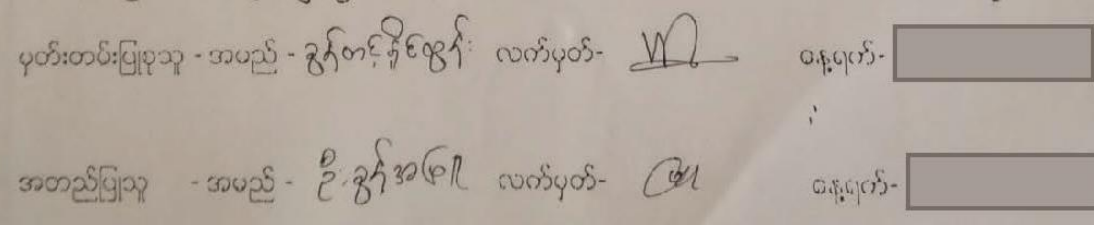 မှတ်တမ်းပြုစုသူ - အမည် - ခွန်တင့်နိုင်ထွန်း လက်မှတ်- နေ့ရက်-
အတည်ပြုသူ - အမည် - ဦးခွန်အဖြူ လက်မှတ်- နေ့ရက်-